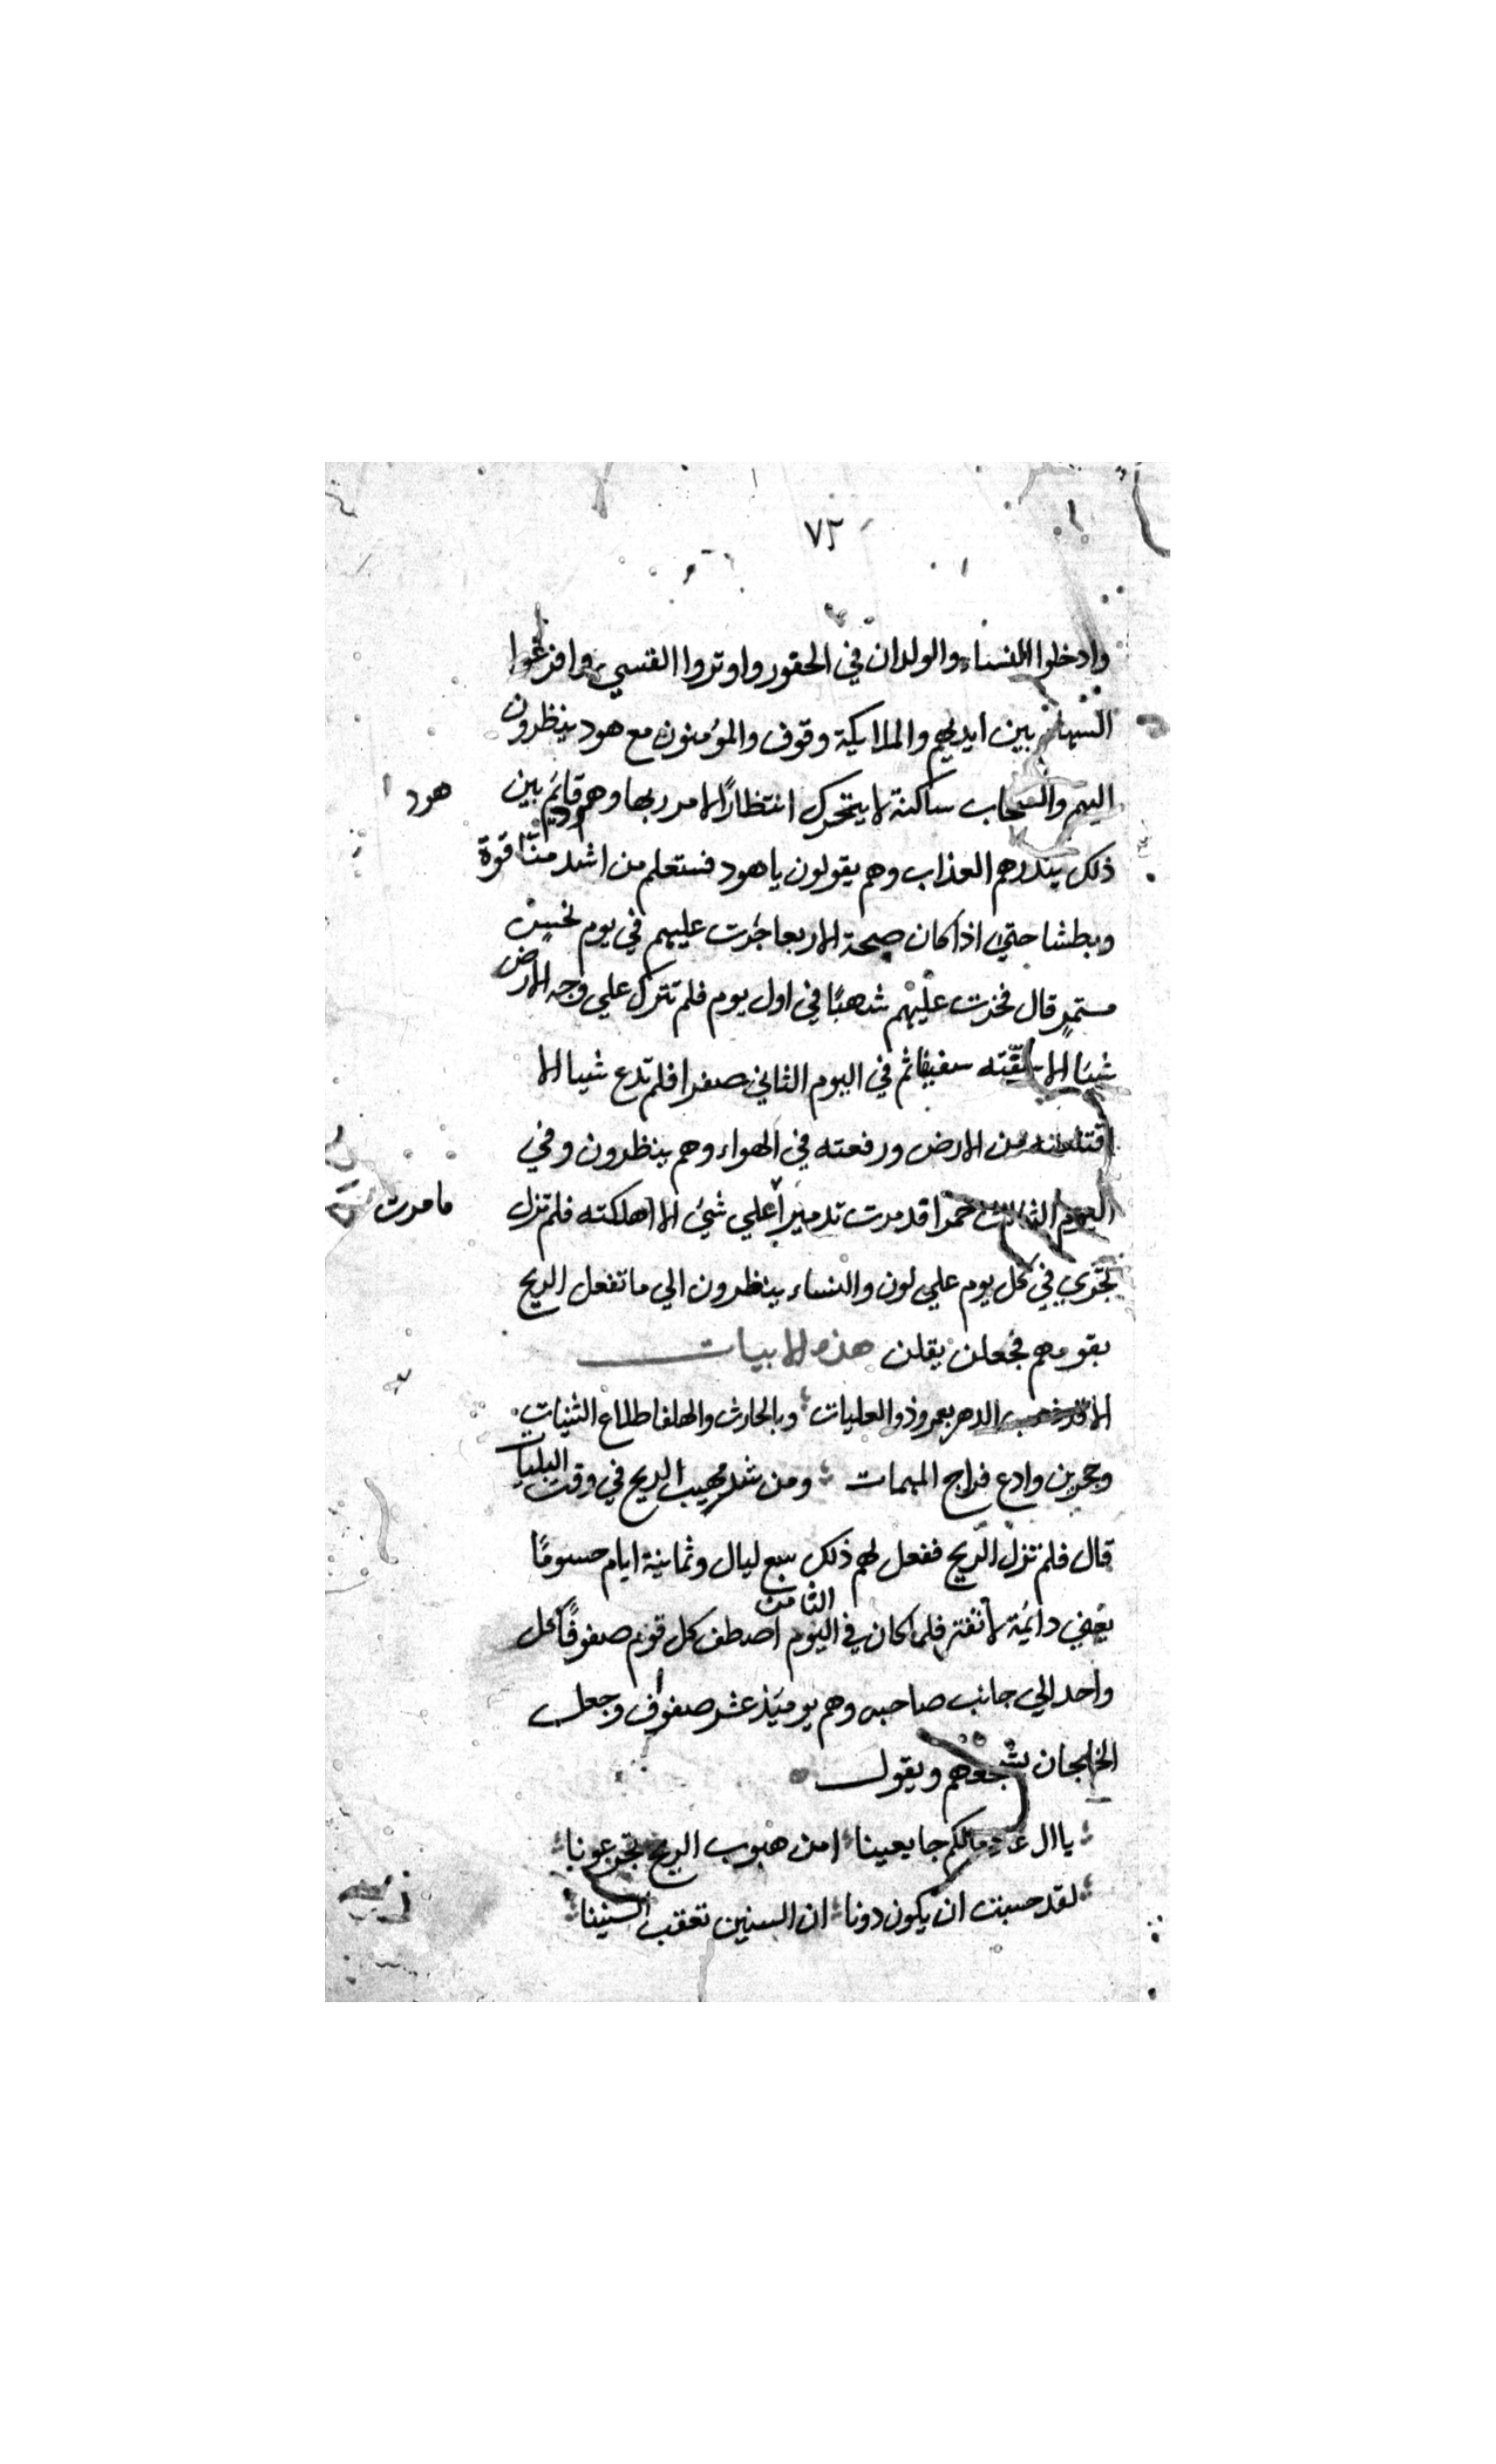 ٧٢
وادخلوا النساء والولدان في الحقور واوتروا القسي وافزغوا
السهام بين ايديهم والملايكة وقوف والمؤمنون مع هود ينظرون
اليهم والسحاب ساكنة لا يتحرك انتظارًا لامر ربها وهود قائم بين
هود
ذلك ينذرهم العذاب وهم يقولون ياهود فستعلم من اشد منّا قوة
وبطشا حتي اذا كان صبحة الاربعا جرت عليهم في يوم نحس
مستمر قال فخرت عليهم شهبًا في اول يوم فلم تترك علي وجه الارض
شيئا الا سفيفا ثم في اليوم الثاني صفرا فلم تدع شيا الا
اقتلعته من الارض ورفعته في الهواء وهم ينظرون وفي
اليوم الثالث حمرا قد مرت تدميرًا علي شيء الا اهلكته فلم تزل
ما مرت
تجري في كل يوم علي لون والنساء ينظرون الي ما تفعل الريح
بقومهم فجعلن يقلن هذه الابيات
الا قد الدهر بعمرو ذو العليات وبالحارث والهلفا طلاع الثنيات
وحجر بن وادع فراج المهمات ومن شد مهيب الريح في وقت البليات
قال فلم تزل الريح ففعل لهم ذلك سبع ليال وثمانية ايام حسومًا
يعني دائمة لا تفتر فلما كان في اليوم الثامن اصطف كل قوم صفوفًا كل
واحد الي جانب صاحبه وهم يوميئذ عشر صفوف وجعل
الخلجان يشجعهم ويقول
ياال عاد مالكم جا يعينا امن هبوب الريح تجزعونا
لقد حسبت ان يكون دونا ان السنين تعقب السنينا